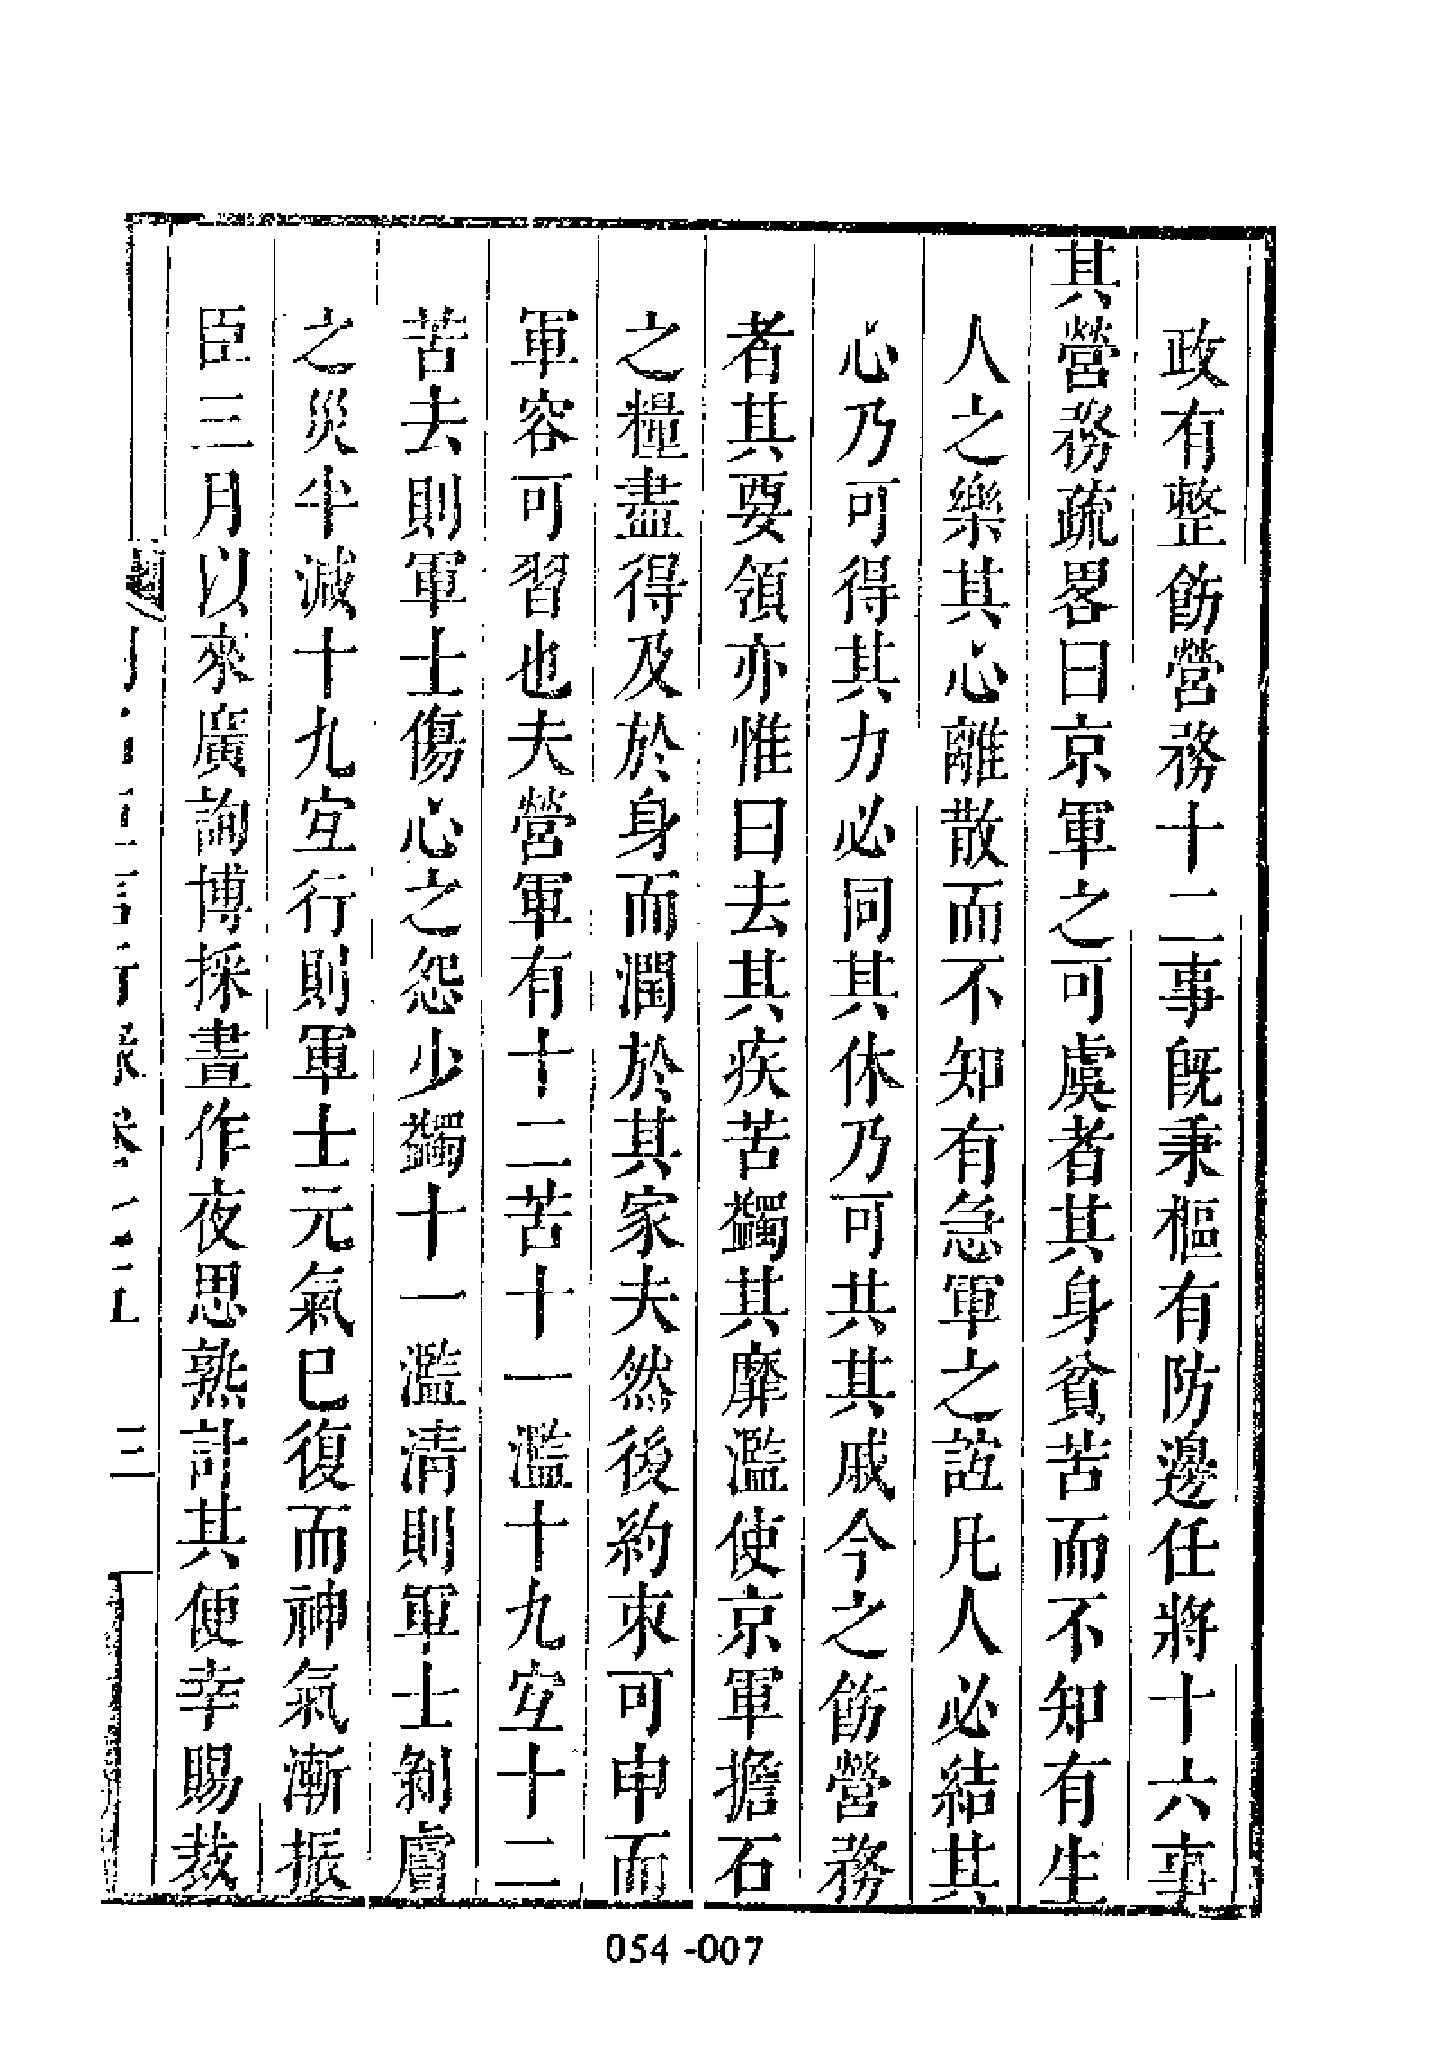 政有整飭營務十二事旣秉樞有防邊任將十六事
其營務疏畧曰京軍之可虞者其身貧苦而不知有生
人之樂其心離散而不知有急軍之誼凡人必結其
心乃可得其力必同其休乃可共其戚今之飭營務
者其要領亦惟曰去其疾苦蠲其靡濫使京軍擔石
之糧盡得及於身而潤於其家夫然後約束可申而
軍容可習也夫營軍有十二苦十一濫十九宜十二
苦去則軍士傷心之怨少蠲十一濫清則軍士剝膚
之災半減十九宜行則軍士元氣已復而神氣漸振
臣三月以來廣詢博採晝作夜思熟計其便幸賜裁
三
054-007